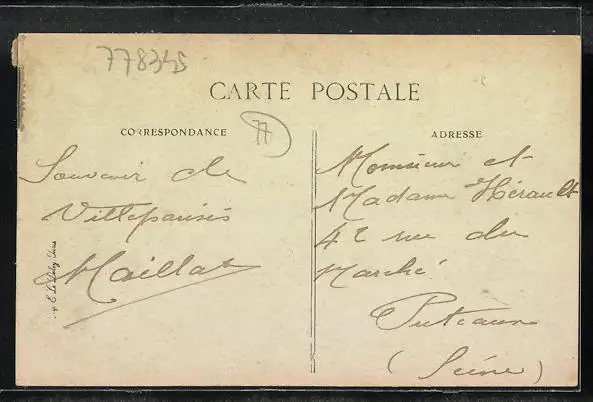 778345
CARTE POSTALE
77
CORRESPONDANCE
ADRESSE
Souvenir de
Villeparisis
Maillat
Monsieur et
Madame Hérault
42 rue du
Marché
Puteaux
(Seine)